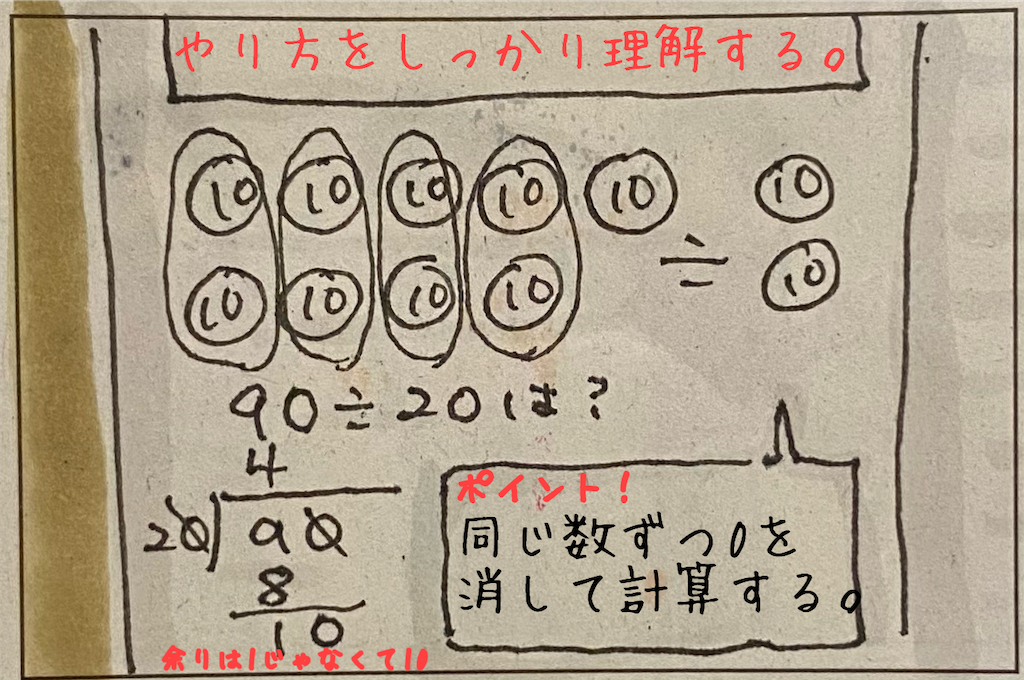 やり方をしっかり理解する。
10 10 10 10 10 10
÷
10 10 10 10 10
90÷20は?
4
20)90
8
10
余りは1じゃなくて10
ポイント!
同じ数ずつ0を
消して計算する。